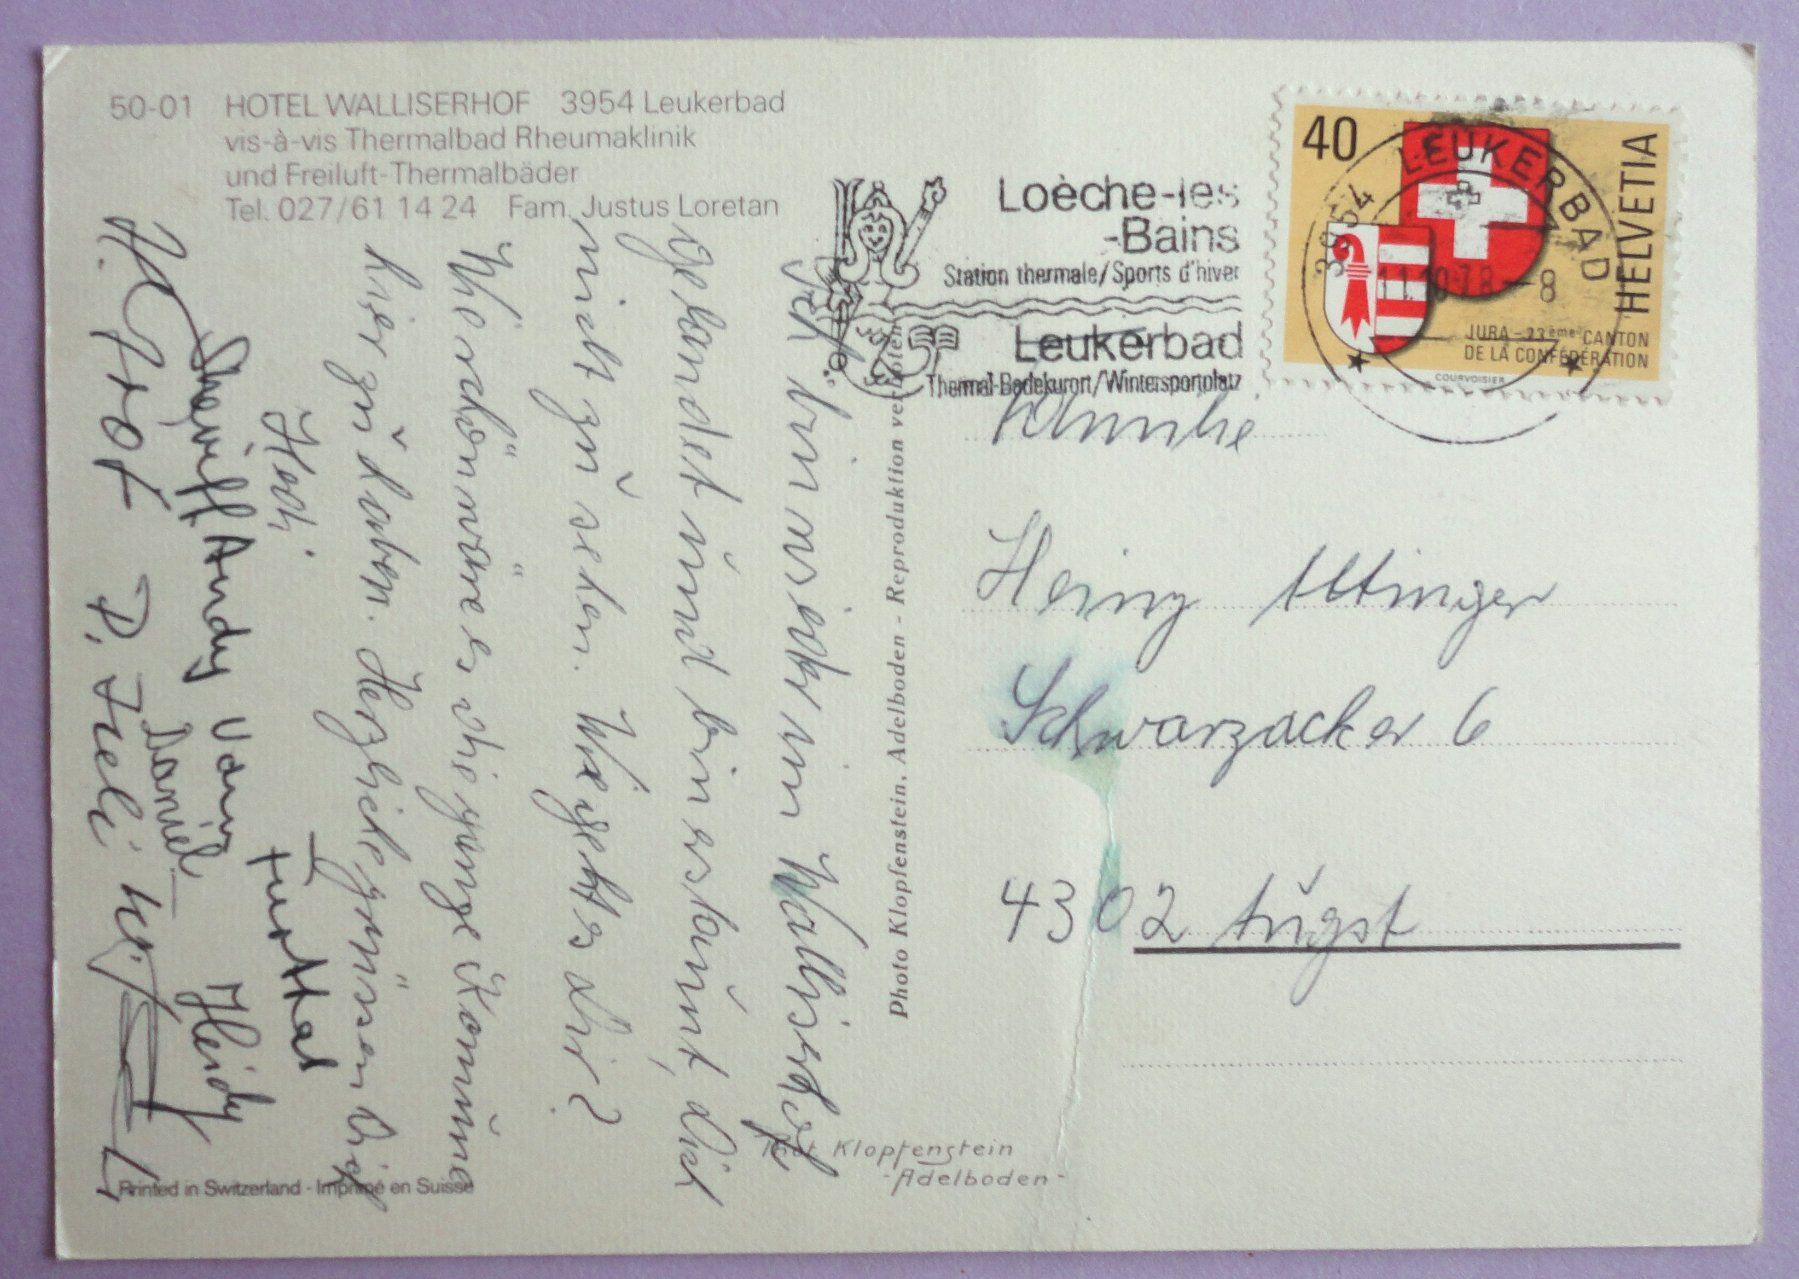 50-01 HOTEL WALLISERHOF 3954 Leukerbad
vis-à-vis Thermalbad Rheumaklinik
und Freiluft-Thermalbäder
Tel. 027/61 14 24 Fam. Justus Loretan
Loèche-les
-Bains
Station thermale/Sports d'hiver
Leukerbad
Thermal-Badekurort/Wintersportplatz
40
HELVETIA
JURA - 23ème CANTON
DE LA CONFÉDÉRATION
COURVOISIER
3954 LEUKERBAD
11.10.78-8
Ich bin wieder im Walliserhof
gelandet und bin erstaunt, dich
nicht zu sehen. Wie geht's dir?
Wie schön wäre es die ganze Komune
hier zu haben. Herzliche grüsse an Dich
Hedi
Furttal
Andy vom
Daniel
Heidy
Photo Klopfenstein, Adelboden - Reproduktion verboten
Familie
Heinz Attinger
Schwarzacker 6
4302 Augst
Klopfenstein
-Adelboden-
Printed in Switzerland - Imprimé en Suisse